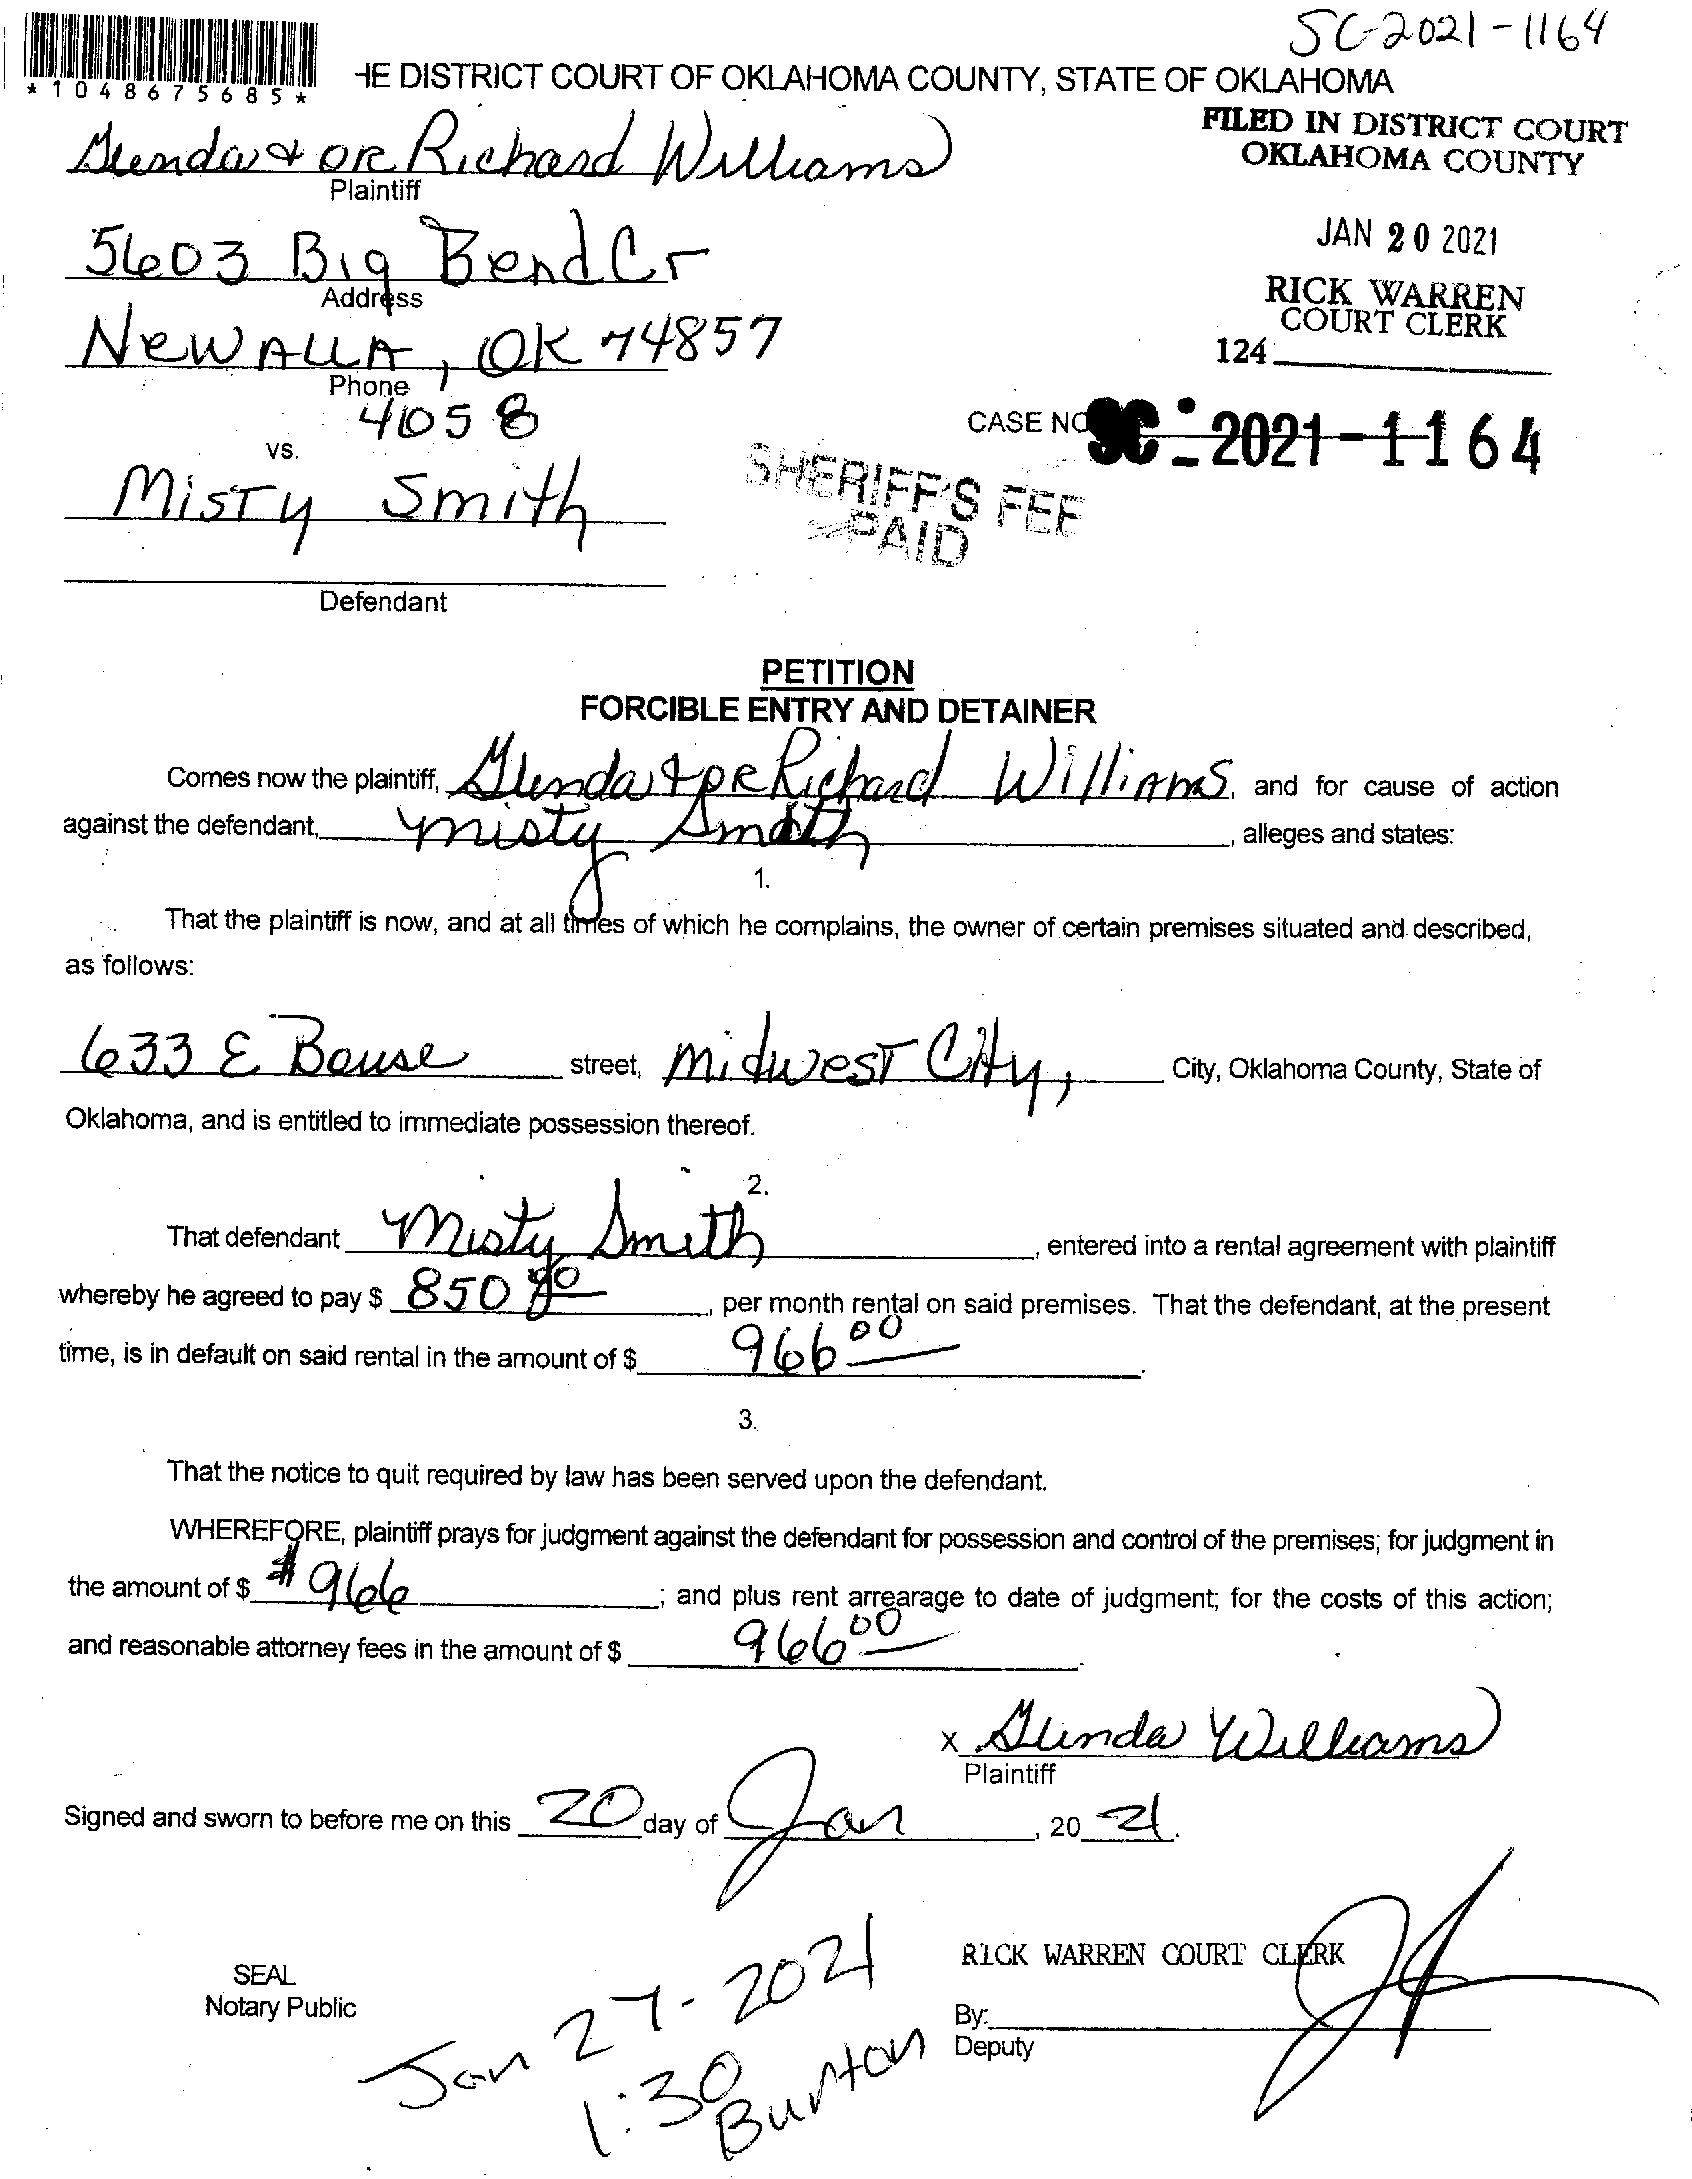 SC-2021-1164
*1048675685*
HE DISTRICT COURT OF OKLAHOMA COUNTY, STATE OF OKLAHOMA
Glenda & OR Richard Williams
Plaintiff
FILED IN DISTRICT COURT
OKLAHOMA COUNTY
JAN 20 2021
RICK WARREN
COURT CLERK
124
5603 Big Bend Cr
Address
NEWALLA, OK 74857
Phone
4058
vs.
CASE NO SC-2021-1164
Misty Smith
SHERIFF'S FEE
PAID
Defendant
PETITION
FORCIBLE ENTRY AND DETAINER
Comes now the plaintiff, Glenda & OR Richard Williams, and for cause of action
against the defendant, Misty Smith, alleges and states:
1.
That the plaintiff is now, and at all times of which he complains, the owner of certain premises situated and described,
as follows:
633 E Bouse street, Midwest City, City, Oklahoma County, State of
Oklahoma, and is entitled to immediate possession thereof.
2.
That defendant Misty Smith, entered into a rental agreement with plaintiff
whereby he agreed to pay $ 850 00, per month rental on said premises. That the defendant, at the present
time, is in default on said rental in the amount of $ 966 00.
3.
That the notice to quit required by law has been served upon the defendant.
WHEREFORE, plaintiff prays for judgment against the defendant for possession and control of the premises; for judgment in
the amount of $ #966; and plus rent arrearage to date of judgment; for the costs of this action;
and reasonable attorney fees in the amount of $ 966 00.
x Glenda Williams
Plaintiff
Signed and sworn to before me on this 20 day of Jan, 20 21.
SEAL
Notary Public
RICK WARREN COURT CLERK
By:
Deputy
Jan 27-2021
1:30
Burton